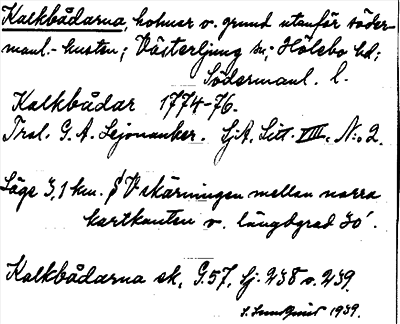 Kalkbådarna, holmar o. grund utanför söder-
manl.-kusten; Västerljung sn; Hölebo hd;
Södermanl. l.
Kalkbådar 1774-76.
Trol. G. A. Lejonanker. SjA, Litt. VIII, N:o 2.
Läge 3,1 km. V skärningen mellan norra
kartkanten o. längdgrad 30´.
Kalkbådarna sk. G.57, Sj. 238 o. 239.
S. Sundquist 1939.